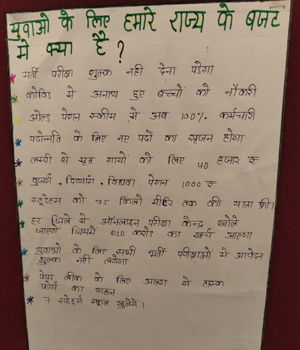 युवाओ के लिए हमारे राज्य के बजट
मे क्या है ?
भर्ती परीक्षा शुल्क नही देना पडेगा
कोविड मे अनाथ हुए बच्चों को नौकरी
ओल्ड पेंशन स्कीम से अब 100% कर्मचारी
पदोन्नति के लिए नए पदों का सृजन होगा
लम्पी से मृत गायों की लिए 40 हजार रु
बुजुर्ग, दिव्यांग, विधवा पेंशन 1000 रु
स्टूडेंट्स को 75 किलो मीटर तक की यात्रा फ्री।
हर जिले में ऑनलाइन परीक्षा केन्द्र खोले
जाएंगे जिसमें 250 करोड का खर्चा आएगा
युवाओं के लिए सभी भर्ती परीक्षाओं मे आवेदन
शुल्क नही लगेगा
पेपर लीक के लिए अलग से टास्क
फोर्स का गठन
7 स्पोर्ट्स स्कूल खुलेंगे।